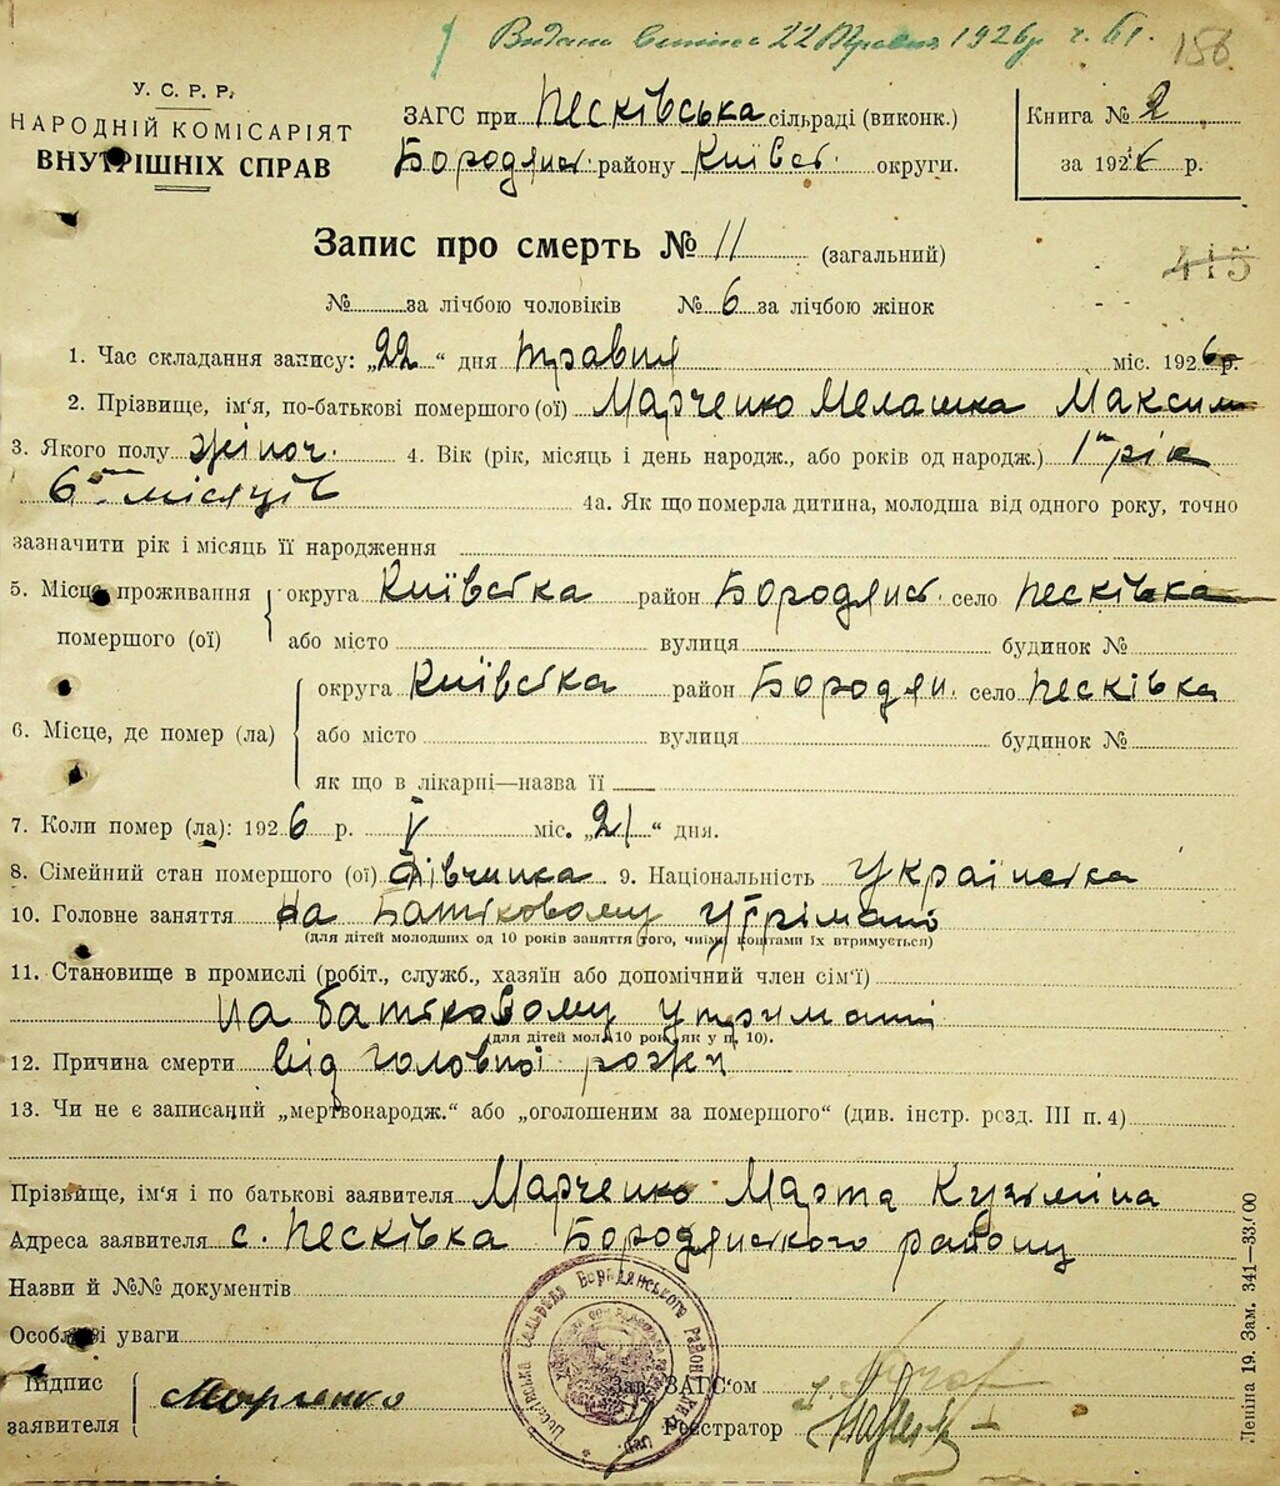 Видано 22 Травня 1926р ч. 61. 156
У. С. Р. Р.
НАРОДНІЙ КОМІСАРІЯТ
ВНУТРІШНІХ СПРАВ
ЗАГС при Песківська сільраді (виконк.)
Бородянс. району Київсь. округи.
Книга № 2
за 1926 р.
Запис про смерть № 11 (загальний)
415
№ за лічбою чоловіків № 6 за лічбою жінок
1. Час складання запису: „22“ дня травня міс. 1926 р.
2. Прізвище, ім‘я, по-батькові помершого (ої) Марченко Мелашка Максим
3. Якого полу жіноч. 4. Вік (рік, місяць і день народж., або років од народж.) 1н рік
6 місяців 4а. Як що померла дитина, молодша від одного року, точно
зазначити рік і місяць її народження
5. Місце проживання помершого (ої) округа Київська район Бородянс. село Песківка
або місто вулиця будинок №
6. Місце, де помер (ла) округа Київська район Бородян. село Песківка
або місто вулиця будинок №
як що в лікарні—назва її
7. Коли помер (ла): 1926 р. V міс. „21“ дня.
8. Сімейний стан помершого (ої) дівчинка. 9. Національність Українка
10. Головне заняття На батьковому утрімані
(для дітей молодших од 10 років заняття того, чиїми коштами їх втримується)
11. Становище в промислі (робіт., служб., хазяїн або допомічний член сім‘ї)
На батьковому утримані
(для дітей мол. 10 рок. як у п. 10).
12. Причина смерти від головної рожи
13. Чи не є записаний „мертвонародж.“ або „оголошеним за помершого“ (див. інстр. розд. III п. 4)
Прізвище, ім‘я і по батькові заявителя Марченко Марта Кузьміна
Адреса заявителя с. Песківка Бородянського району
Назви й №№ документів
Особливі уваги
Підпис
заявителя Марченко
Зав. ЗАГС‘ом
Реєстратор
Леніна 19. Зам. 341—33.000